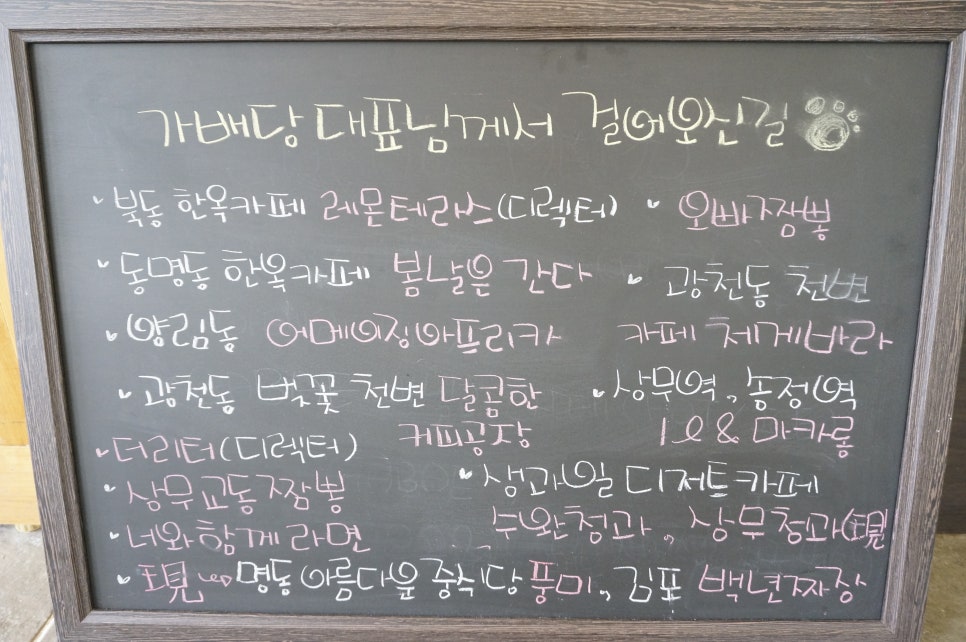 가배당 대표님께서 걸어오신길
북동 한옥카페 레몬테라스(디렉터)
오빠짬뽕
동명동 한옥카페 봄날은 간다
광천동 천변
카페 체게바라
양림동 어메이징아프리카
광천동 벚꽃 천변 달콤한
커피공장
상무역, 송정역
1l & 마카롱
더리터(디렉터)
생과일 디저트카페
수완청과, 상무청과(現
상무교동짬뽕
너와함께라면
現 → 명동 아름다운 중식당 풍미, 김포 백년짜장